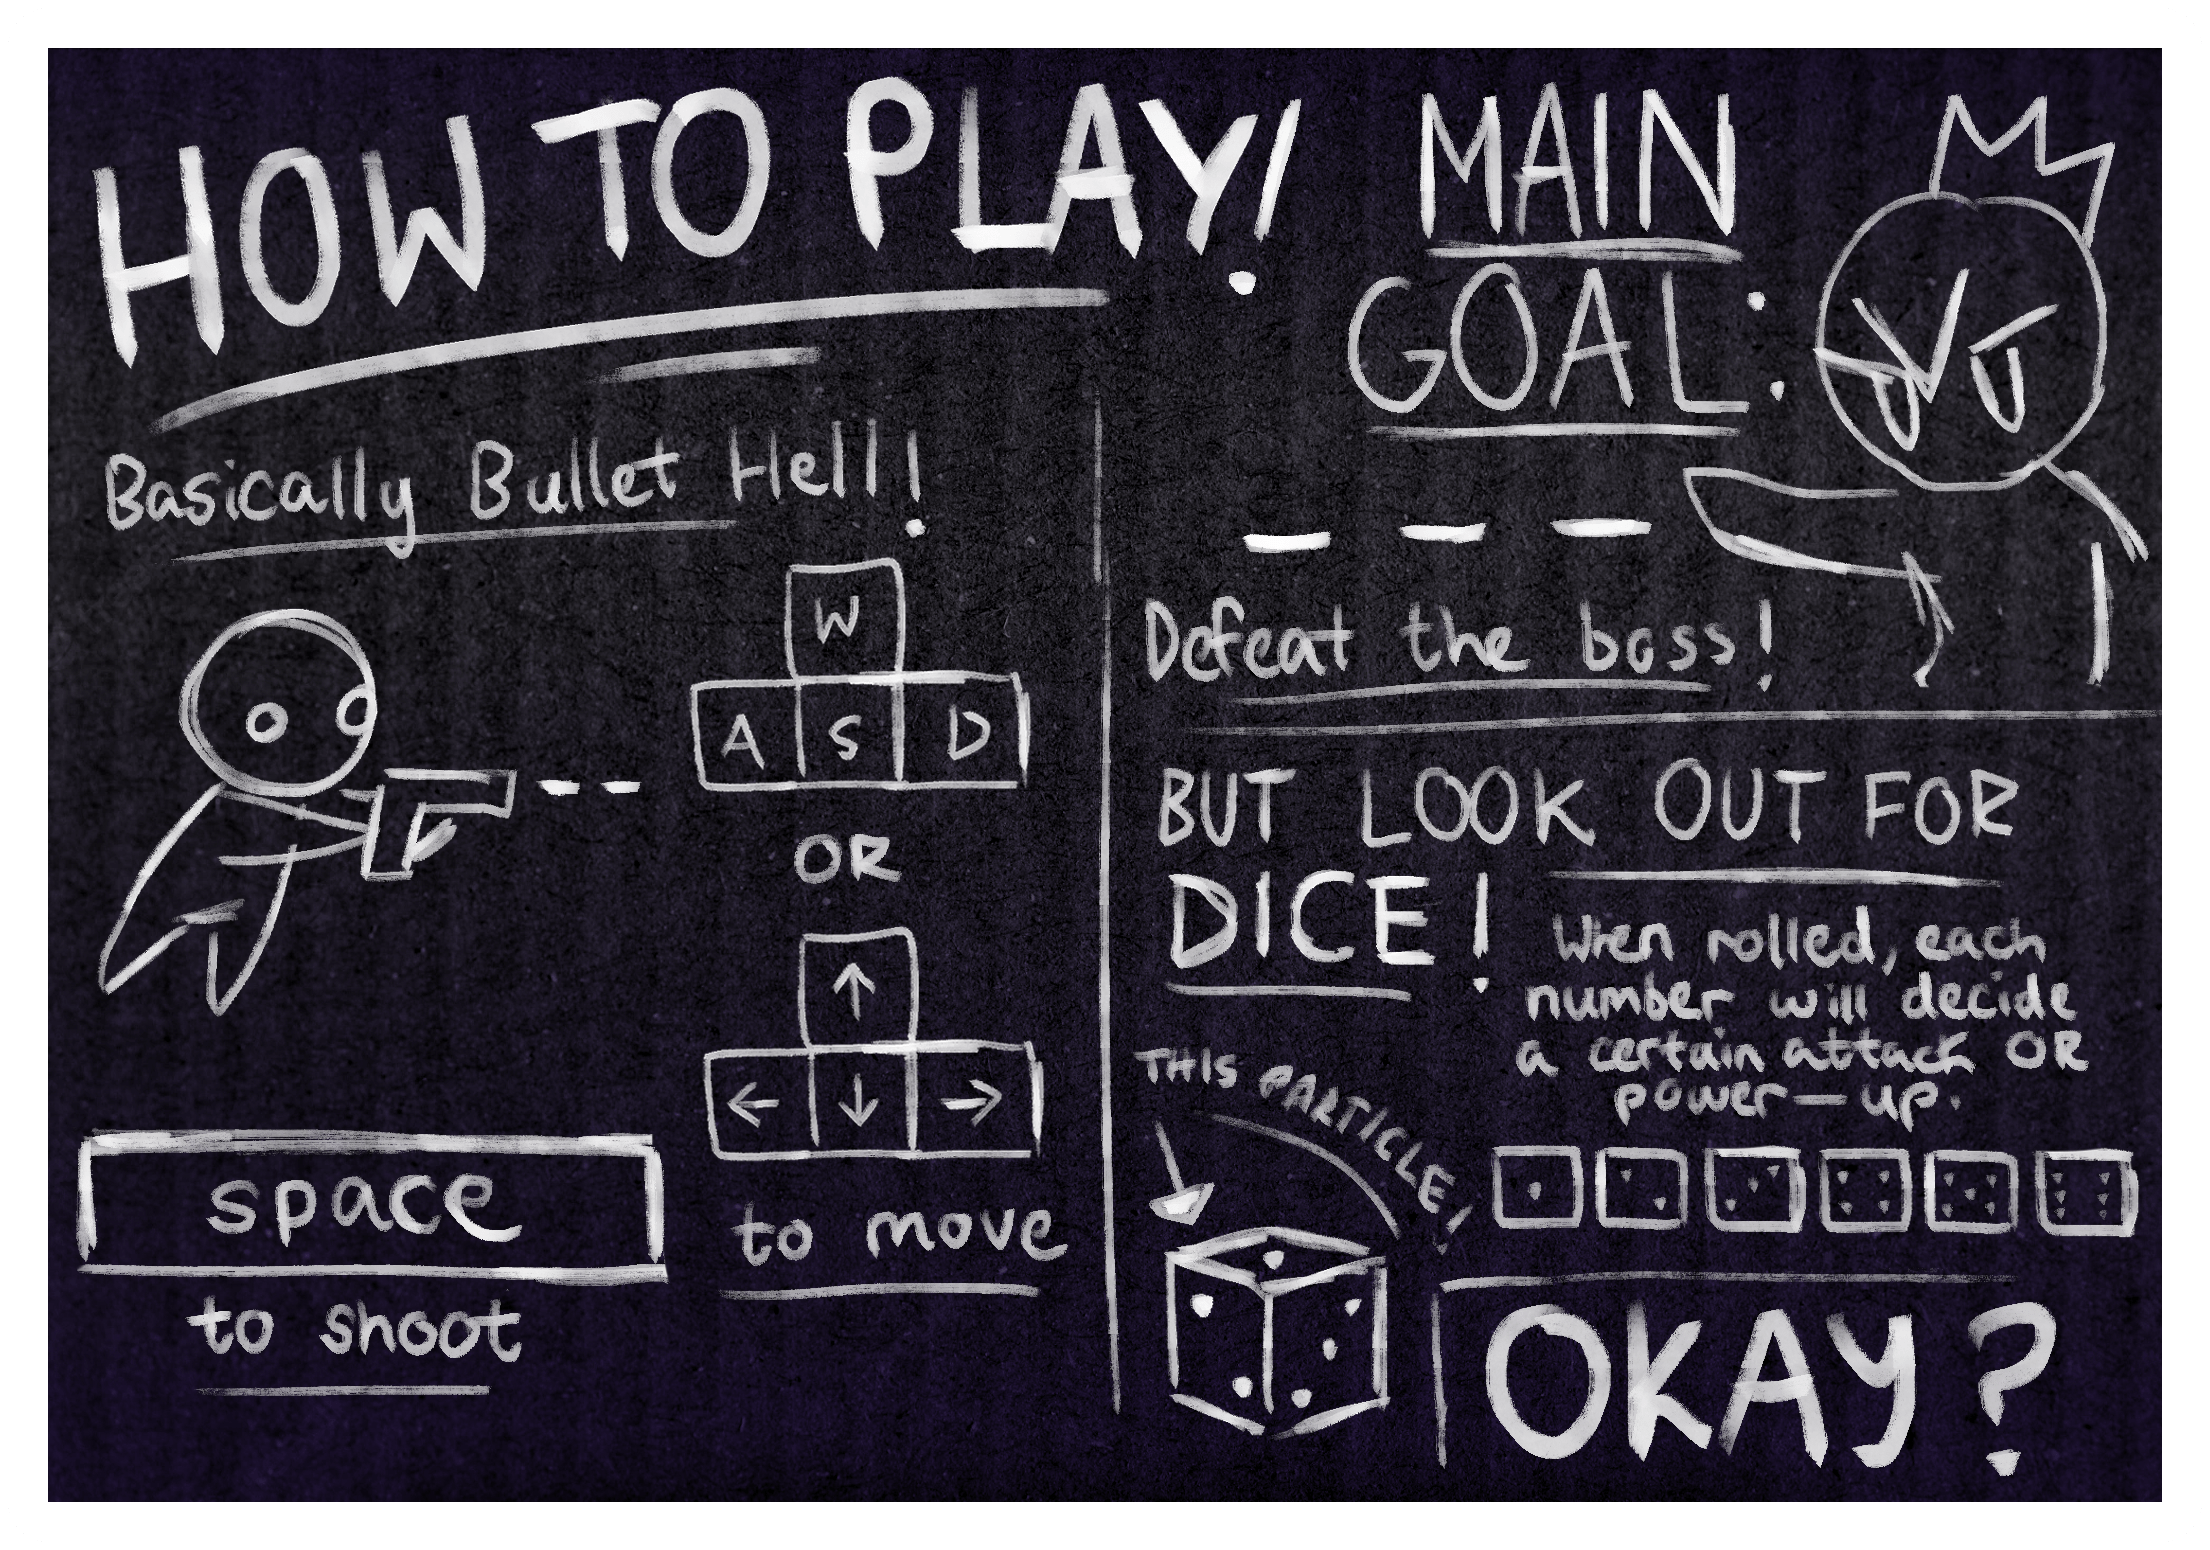 HOW TO PLAY!
Basically Bullet Hell!
W
A S D
OR
↑
← ↓ →
to move
space
to shoot
MAIN
GOAL:
Defeat the boss!
BUT LOOK OUT FOR
DICE!
When rolled, each
number will decide
a certain attack OR
power-up.
THIS PARTICLE!
OKAY?